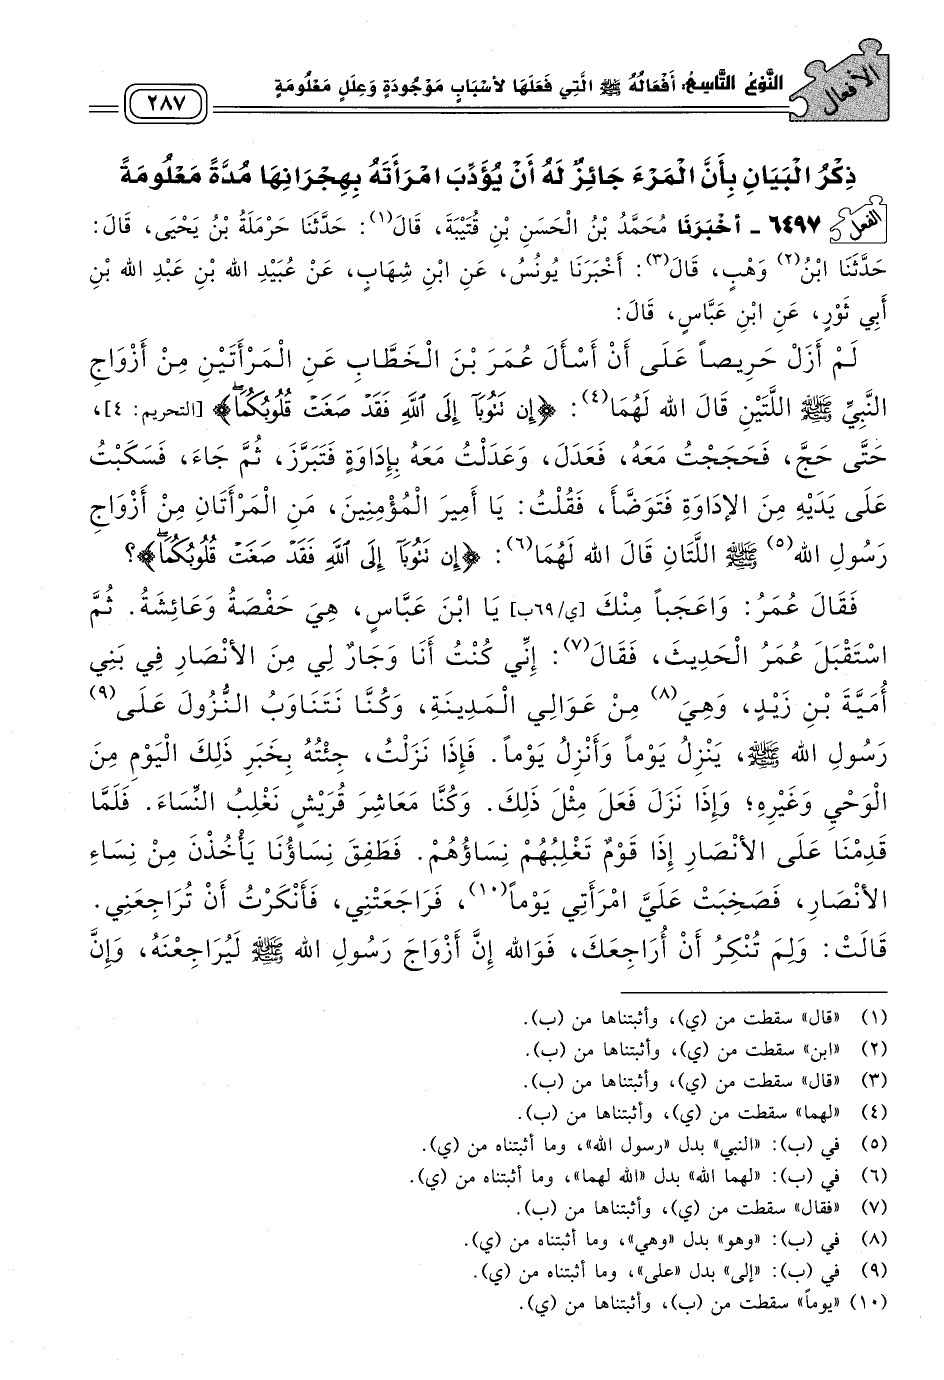 الأفعال
النَّوْعُ التَّاسِعُ: أَفْعَالُهُ ﷺ الَّتِي فَعَلَهَا لأَسْبَابٍ مَوْجُودَةٍ وَعِلَلٍ مَعْلُومَةٍ
٢٨٧
ذِكْرُ الْبَيَانِ بِأَنَّ الْمَرْءَ جَائِزٌ لَهُ أَنْ يُؤَدِّبَ امْرَأَتَهُ بِهِجْرَانِهَا مُدَّةً مَعْلُومَةً
الفعل ٦٤٩٧ - أخْبَرَنَا مُحَمَّدُ بْنُ الْحَسَنِ بْنِ قُتَيْبَةَ، قَالَ(١): حَدَّثَنَا حَرْمَلَةُ بْنُ يَحْيَى، قَالَ:
حَدَّثَنَا ابْنُ(٢) وَهْبٍ، قَالَ(٣): أَخْبَرَنَا يُونُسُ، عَنِ ابْنِ شِهَابٍ، عَنْ عُبَيْدِ الله بْنِ عَبْدِ الله بْنِ
أَبِي ثَوْرٍ، عَنِ ابْنِ عَبَّاسٍ، قَالَ:
لَمْ أَزَلْ حَرِيصاً عَلَى أَنْ أَسْأَلَ عُمَرَ بْنَ الْخَطَّابِ عَنِ الْمَرْأَتَيْنِ مِنْ أَزْوَاجِ
النَّبِيِّ ﷺ اللَّتَيْنِ قَالَ الله لَهُمَا(٤): ﴿إِن نَتُوبَآ إِلَى ٱللَّهِ فَقَدْ صَغَتْ قُلُوبُكُمَا﴾ [التحريم: ٤]،
حَتَّى حَجَّ، فَحَجَجْتُ مَعَهُ، فَعَدَلَ، وَعَدَلْتُ مَعَهُ بِإِدَاوَةٍ فَتَبَرَّزَ، ثُمَّ جَاءَ، فَسَكَبْتُ
عَلَى يَدَيْهِ مِنَ الإدَاوَةِ فَتَوَضَّأَ، فَقُلْتُ: يَا أَمِيرَ الْمُؤْمِنِينَ، مَنِ الْمَرْأَتَانِ مِنْ أَزْوَاجِ
رَسُولِ الله(٥) ﷺ اللَّتَانِ قَالَ الله لَهُمَا(٦): ﴿إِن نَتُوبَآ إِلَى ٱللَّهِ فَقَدْ صَغَتْ قُلُوبُكُمَا﴾؟
فَقَالَ عُمَرُ: وَاعَجَباً مِنْكَ [ي/٦٩ب] يَا ابْنَ عَبَّاسٍ، هِيَ حَفْصَةُ وَعَائِشَةُ. ثُمَّ
اسْتَقْبَلَ عُمَرُ الْحَدِيثَ، فَقَالَ(٧): إِنِّي كُنْتُ أَنَا وَجَارٌ لِي مِنَ الأَنْصَارِ فِي بَنِي
أُمَيَّةَ بْنِ زَيْدٍ، وَهِيَ(٨) مِنْ عَوَالِي الْمَدِينَةِ، وَكُنَّا نَتَنَاوَبُ النُّزُولَ عَلَى(٩)
رَسُولِ الله ﷺ، يَنْزِلُ يَوْماً وَأَنْزِلُ يَوْماً. فَإِذَا نَزَلْتُ، جِئْتُهُ بِخَبَرِ ذَلِكَ الْيَوْمِ مِنَ
الْوَحْيِ وَغَيْرِهِ؛ وَإِذَا نَزَلَ فَعَلَ مِثْلَ ذَلِكَ. وَكُنَّا مَعَاشِرَ قُرَيْشٍ نَغْلِبُ النِّسَاءَ. فَلَمَّا
قَدِمْنَا عَلَى الأَنْصَارِ إِذَا قَوْمٌ تَغْلِبُهُمْ نِسَاؤُهُمْ. فَطَفِقَ نِسَاؤُنَا يَأْخُذْنَ مِنْ نِسَاءِ
الأنْصَارِ، فَصَخِبَتْ عَلَيَّ امْرَأَتِي يَوْماً(١٠)، فَرَاجَعَتْنِي، فَأَنْكَرْتُ أَنْ تُرَاجِعَنِي.
قَالَتْ: وَلِمَ تُنْكِرُ أَنْ أُرَاجِعَكَ، فَوَالله إِنَّ أَزْوَاجَ رَسُولِ الله ﷺ لَيُرَاجِعْنَهُ، وَإِنَّ
(١) «قال» سقطت من (ي)، وأثبتناها من (ب).
(٢) «ابن» سقطت من (ي)، وأثبتناها من (ب).
(٣) «قال» سقطت من (ي)، وأثبتناها من (ب).
(٤) «لهما» سقطت من (ي)، وأثبتناها من (ب).
(٥) في (ب): «النبي» بدل «رسول الله»، وما أثبتناه من (ي).
(٦) في (ب): «لهما الله» بدل «الله لهما»، وما أثبتناه من (ي).
(٧) «فقال» سقطت من (ي)، وأثبتناها من (ب).
(٨) في (ب): «وهو» بدل «وهي»، وما أثبتناه من (ي).
(٩) في (ب): «إلى» بدل «على»، وما أثبتناه من (ي).
(١٠) «يوماً» سقطت من (ب)، وأثبتناها من (ي).